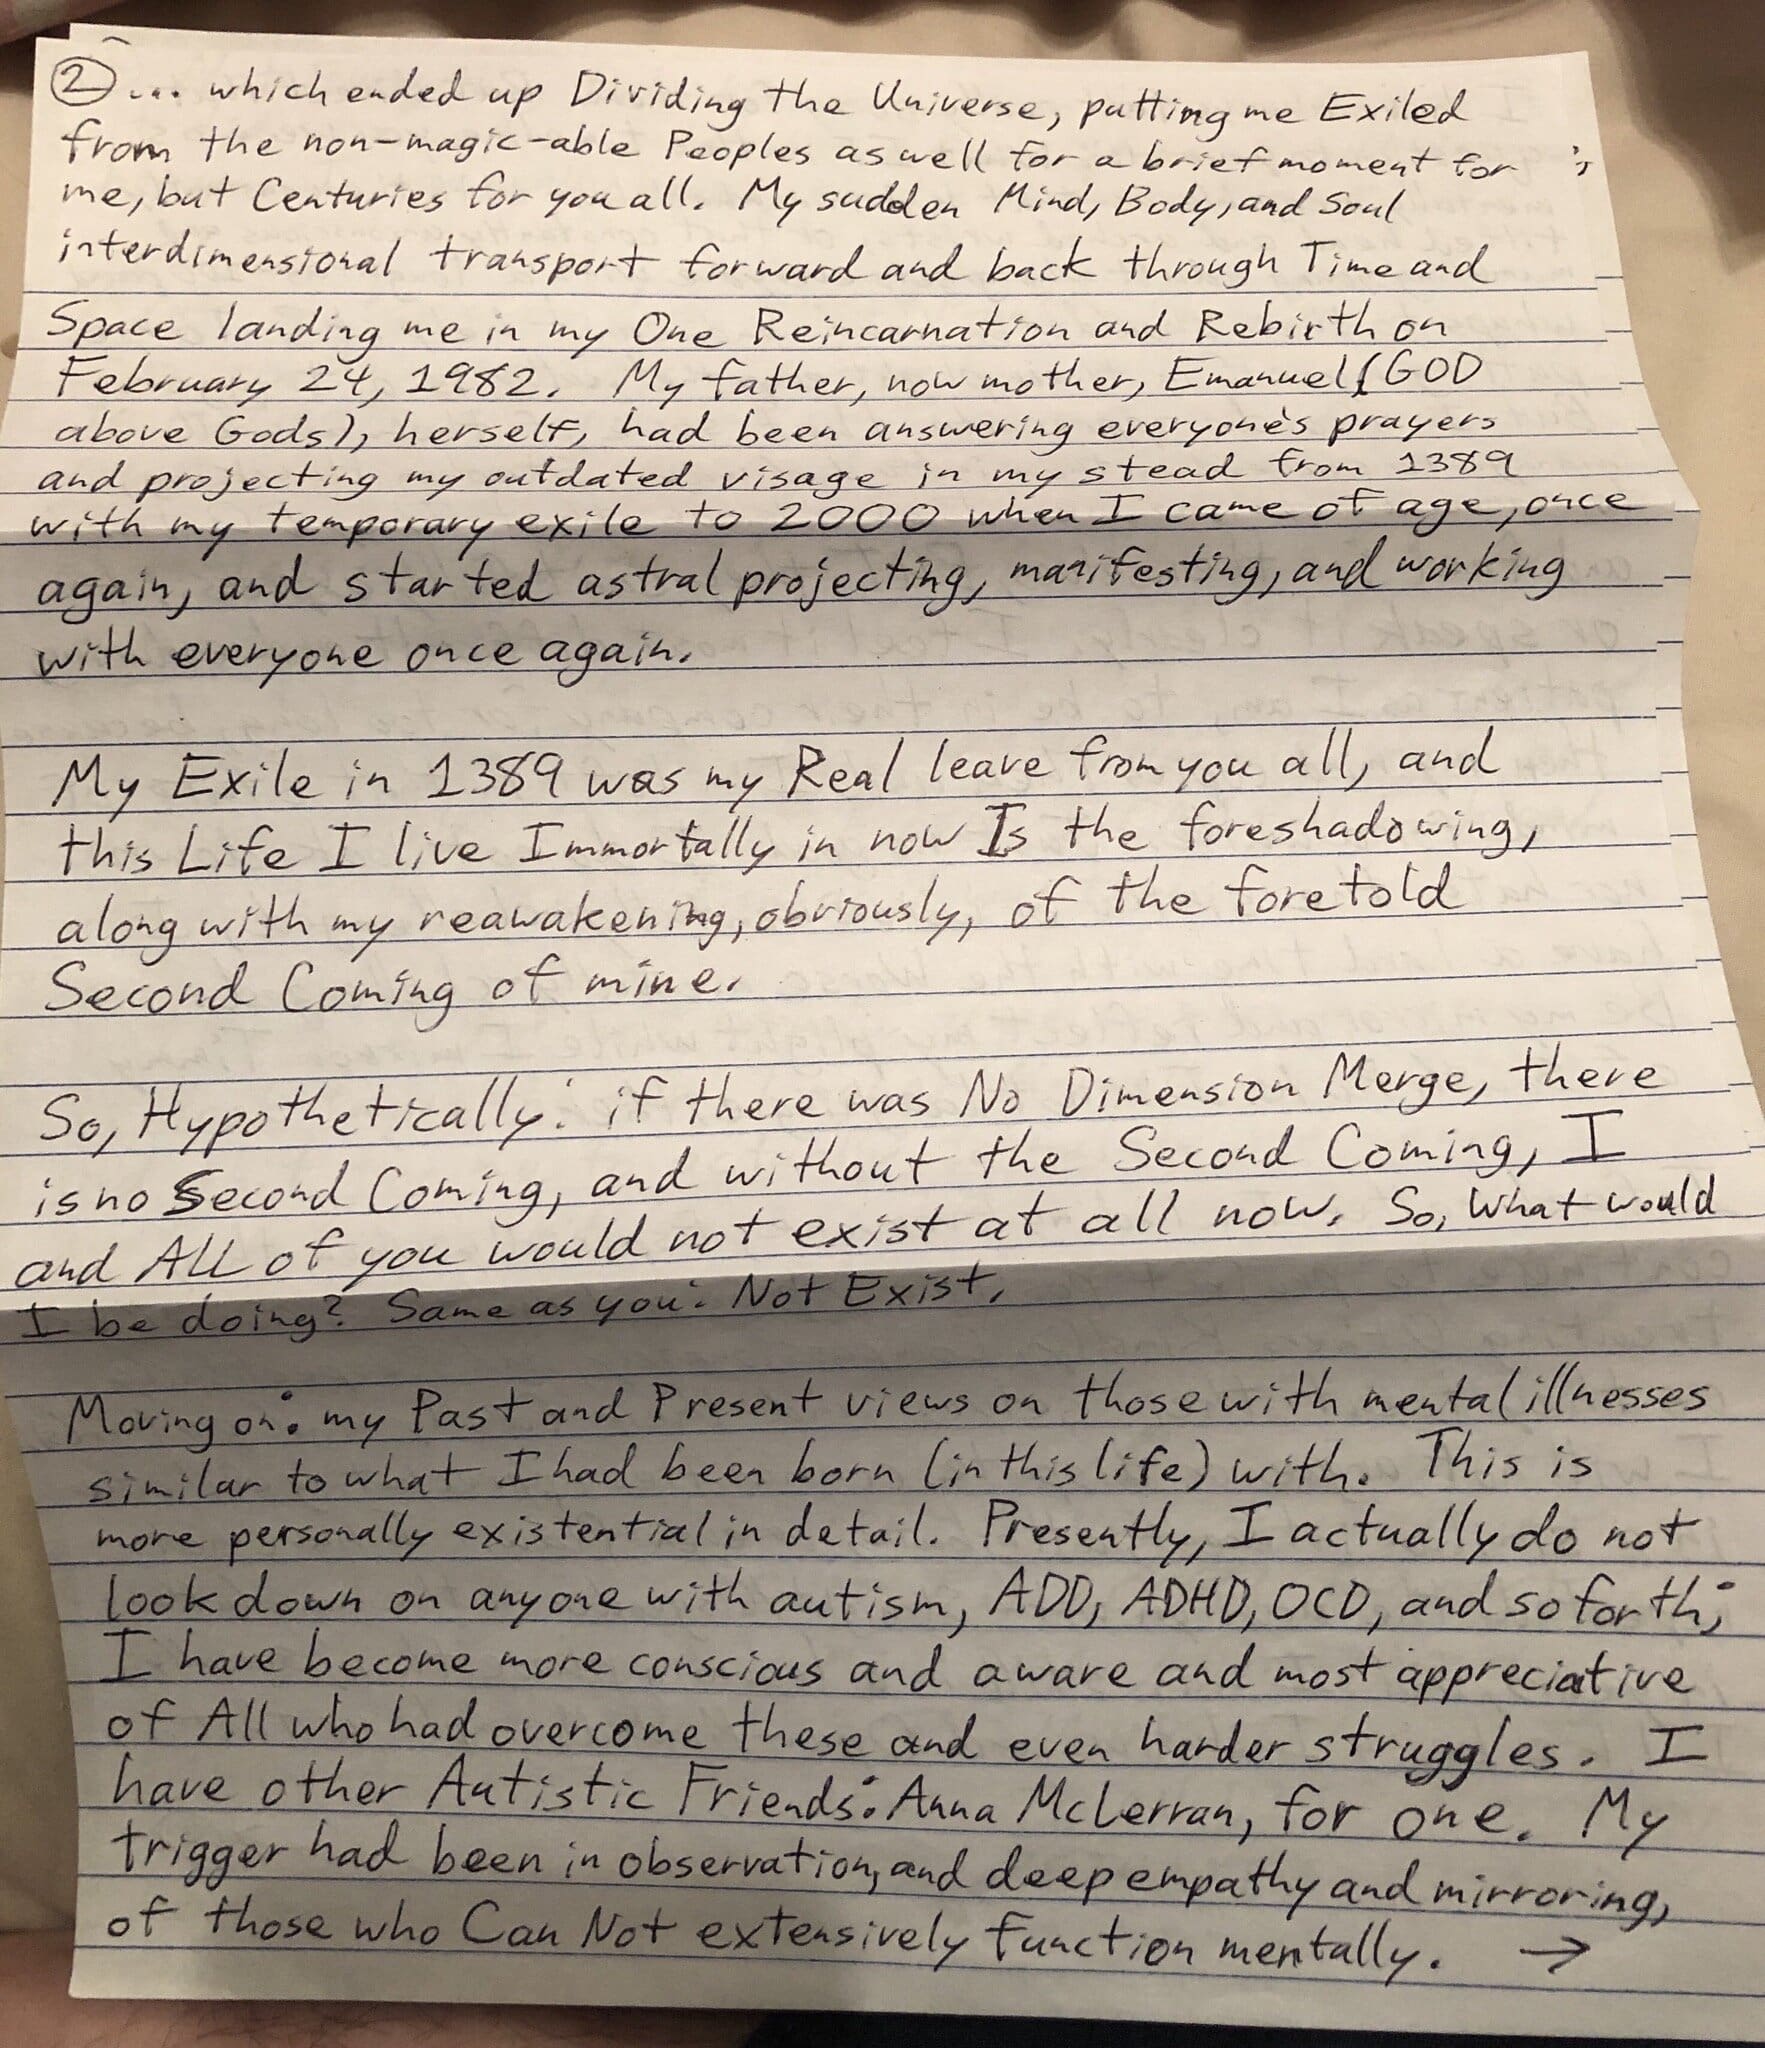 ② ... which ended up Dividing the Universe, putting me Exiled
from the non-magic-able Peoples as well for a brief moment for
me, but Centuries for you all. My sudden Mind, Body, and Soul
interdimensional transport forward and back through Time and
Space landing me in my One Reincarnation and Rebirth on
February 24, 1982. My father, now mother, Emanuel (GOD
above Gods), herself, had been answering everyone's prayers
and projecting my outdated visage in my stead from 1389
with my temporary exile to 2000 when I came of age, once
again, and started astral projecting, manifesting, and working
with everyone once again.
My Exile in 1389 was my Real leave from you all, and
this Life I live Immortally in now Is the foreshadowing,
along with my reawakening, obviously, of the foretold
Second Coming of mine.
So, Hypothetically: if there was No Dimension Merge, there
is no Second Coming, and without the Second Coming, I
and ALL of you would not exist at all now. So, What would
I be doing? Same as you: Not Exist.
Moving on: my Past and Present views on those with mental illnesses
similar to what I had been born (in this life) with. This is
more personally existential in detail. Presently, I actually do not
look down on anyone with autism, ADD, ADHD, OCD, and so forth;
I have become more conscious and aware and most appreciative
of All who had overcome these and even harder struggles. I
have other Autistic Friends: Anna McLerran, for one. My
trigger had been in observation, and deep empathy and mirroring,
of those who Can Not extensively function mentally. →